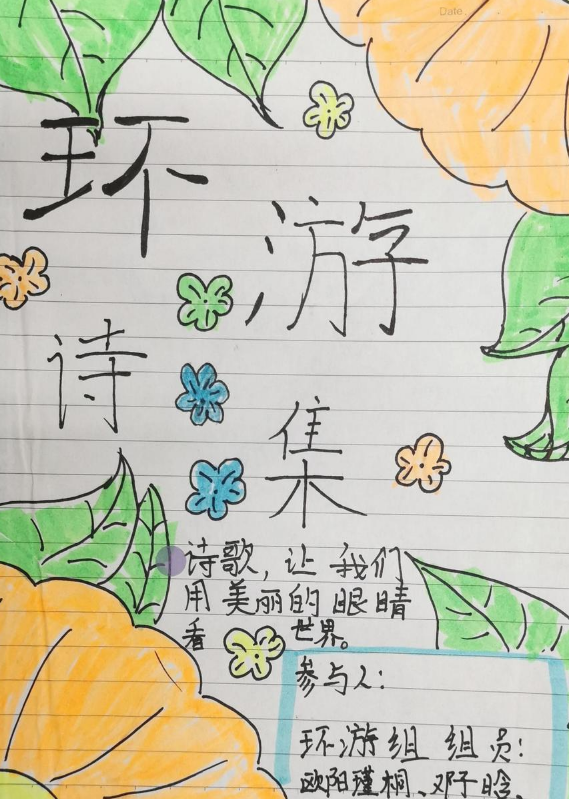 Date.
环游
诗集
诗歌，让我们
用美丽的眼睛
看世界。
参与人：
环游组 组员：
欧阳瑾桐、邓子晗、